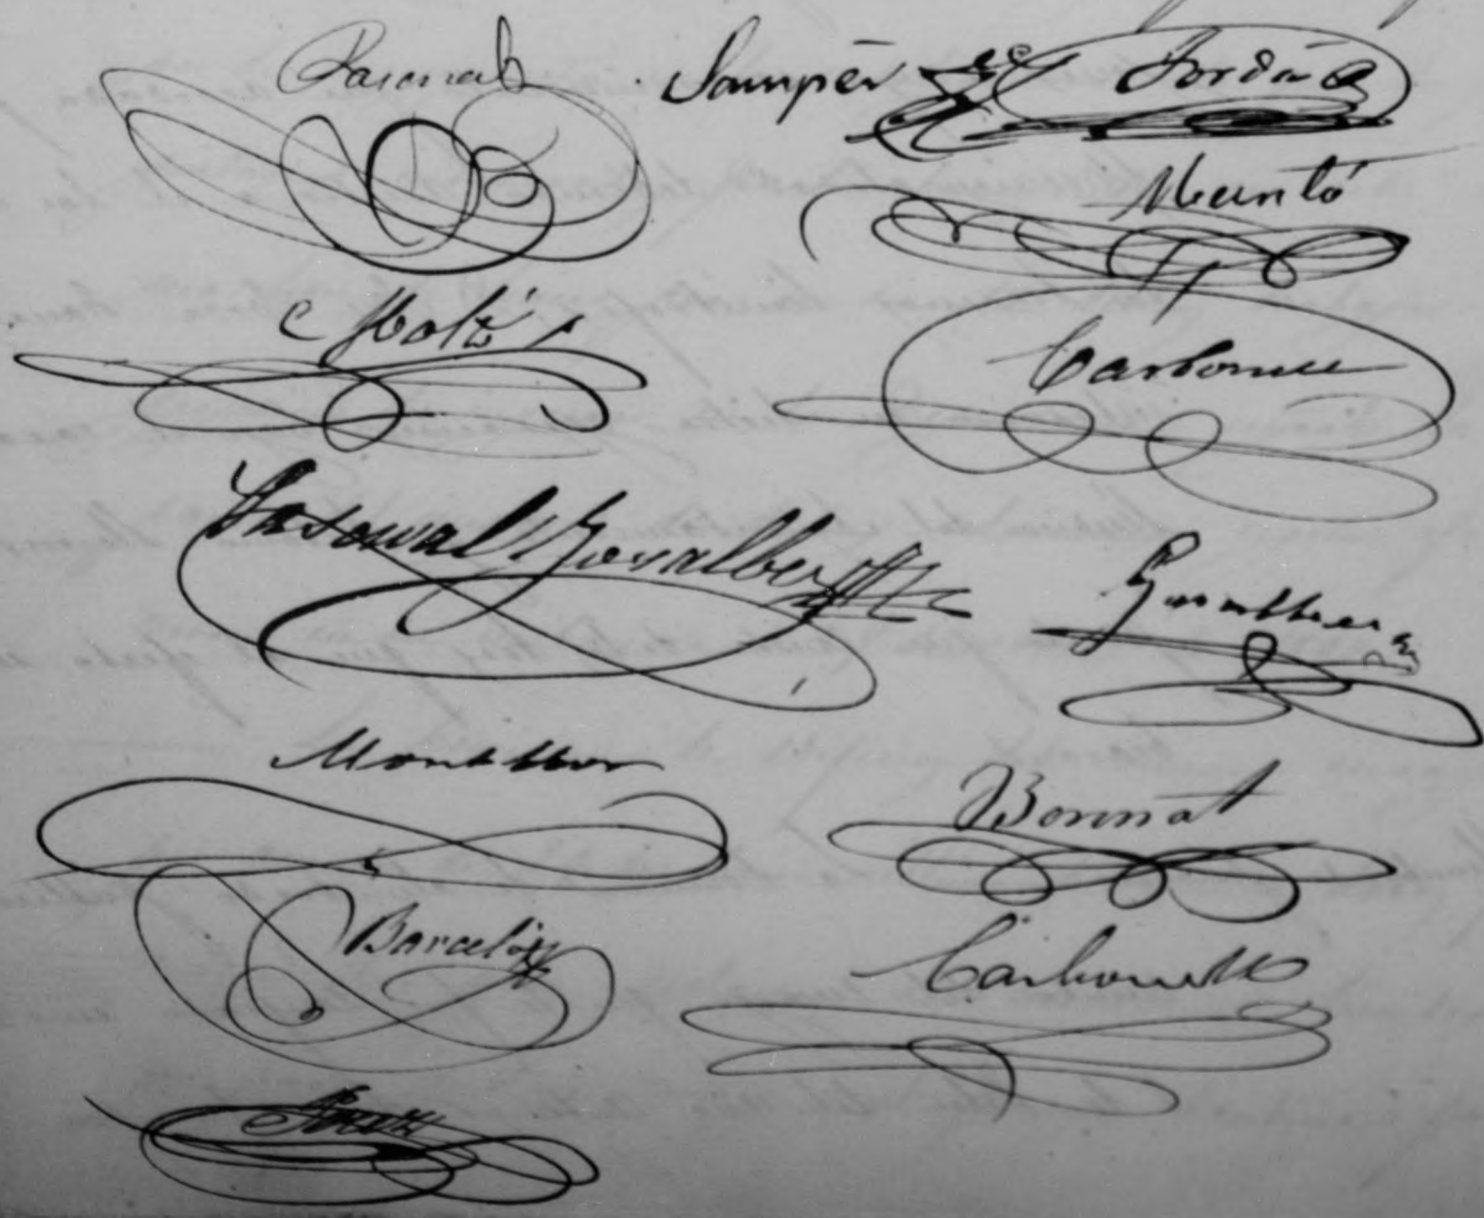 Pascual Samper Jordá
Muntó
Moltó
Carbonell
Pascual Gosalbez
Gosalbez
Monllor
Boronat
Barceló
Carbonell